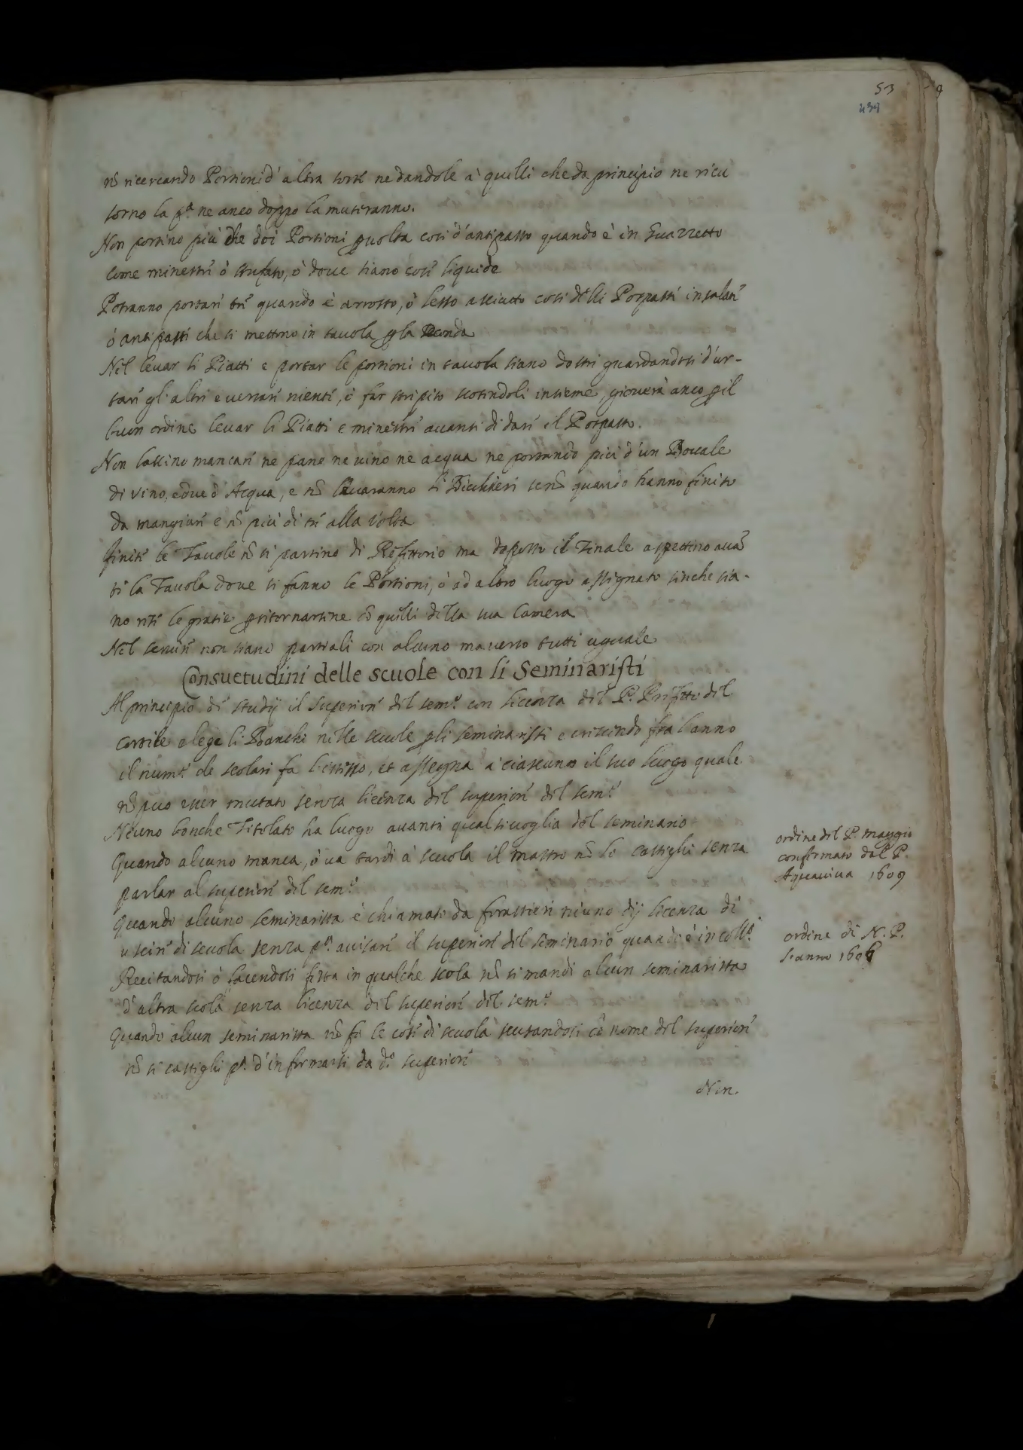 53
439
nō ricercando Portioni d'altra sorte ne dandole à quelli che da principio ne ricu
sorno la pa ne anco doppo la mutiranno.
Non portino più che doi Portioni p uolta così d'antipasto quando è in Guazzetto
come minestre ò stufato, ò doue siano cose liquide
Potranno portarne tre quando è arrosto, ò lesso asciutto così delli Pospasti insalate
ò antipasti che si mettono in tauola p la 
Nel leuar li Piatti e portar le portioni in tauola siano destri guardandosi d'ur-
tare gli altri e versare niente, ò far strepito scotendoli insieme, giouerà anco p il
buon ordine leuar li Piatti e minestre auanti di dare il Pospasto.
Non lassino mancare ne pane ne uino ne acqua ne portando più d'un Boccale
di vino, e due d'Acqua, e nō leuaranno li Bicchieri se nō quando hanno finito
da mangiare e nō più di tre alla uolta
finite le Tauole nō si partino di Refettorio ma doppo il Finale aspettino auā
ti la Tauola doue si fanno le Portioni, ò ad altro luogo assignato sinche sia-
no rese le gratie p ritornarsene cō quelli della sua Camera
Nel seruire non siano partiali con alcuno ma uerso tutti uguale
Consuetudini delle scuole con li Seminaristi
Al principio di studij il superiore del semo con licenza del P. Prefetto del
cortile elege li Banchi nelle scuole p gli seminaristi e crescendo fra l'anno
il numo de scolari fa l'istesso, et assegna à ciascuno il suo luogo quale
nō puo esser mutato senza licenza del superiore del semo
Neuno benche Titolato ha luogo auanti qualsiuoglia del seminario
Quando alcuno manca, ò ua tardi à scuola il mastro nō lo castighi senza
parlar al superiore del semo
Quando alcuno seminarista è chiamato da forastieri niuno dij licenza di
uscire di scuola senza pa auisare il superiore del seminario quando è in collo
Recitandosi ò facendosi festa in qualche scola nō si mandi alcun seminarista
d'altra scola senza licenza del superiore del semo
Quando alcun seminarista nō fa le cose di scuola scusandosi cō nome del superiore
nō si castighi pa d'informarsi da do superiore
Non.
ordine del P. maggio
confirmato dal P.
Aquauiua 1609
ordine di N. P.
l'anno 1606